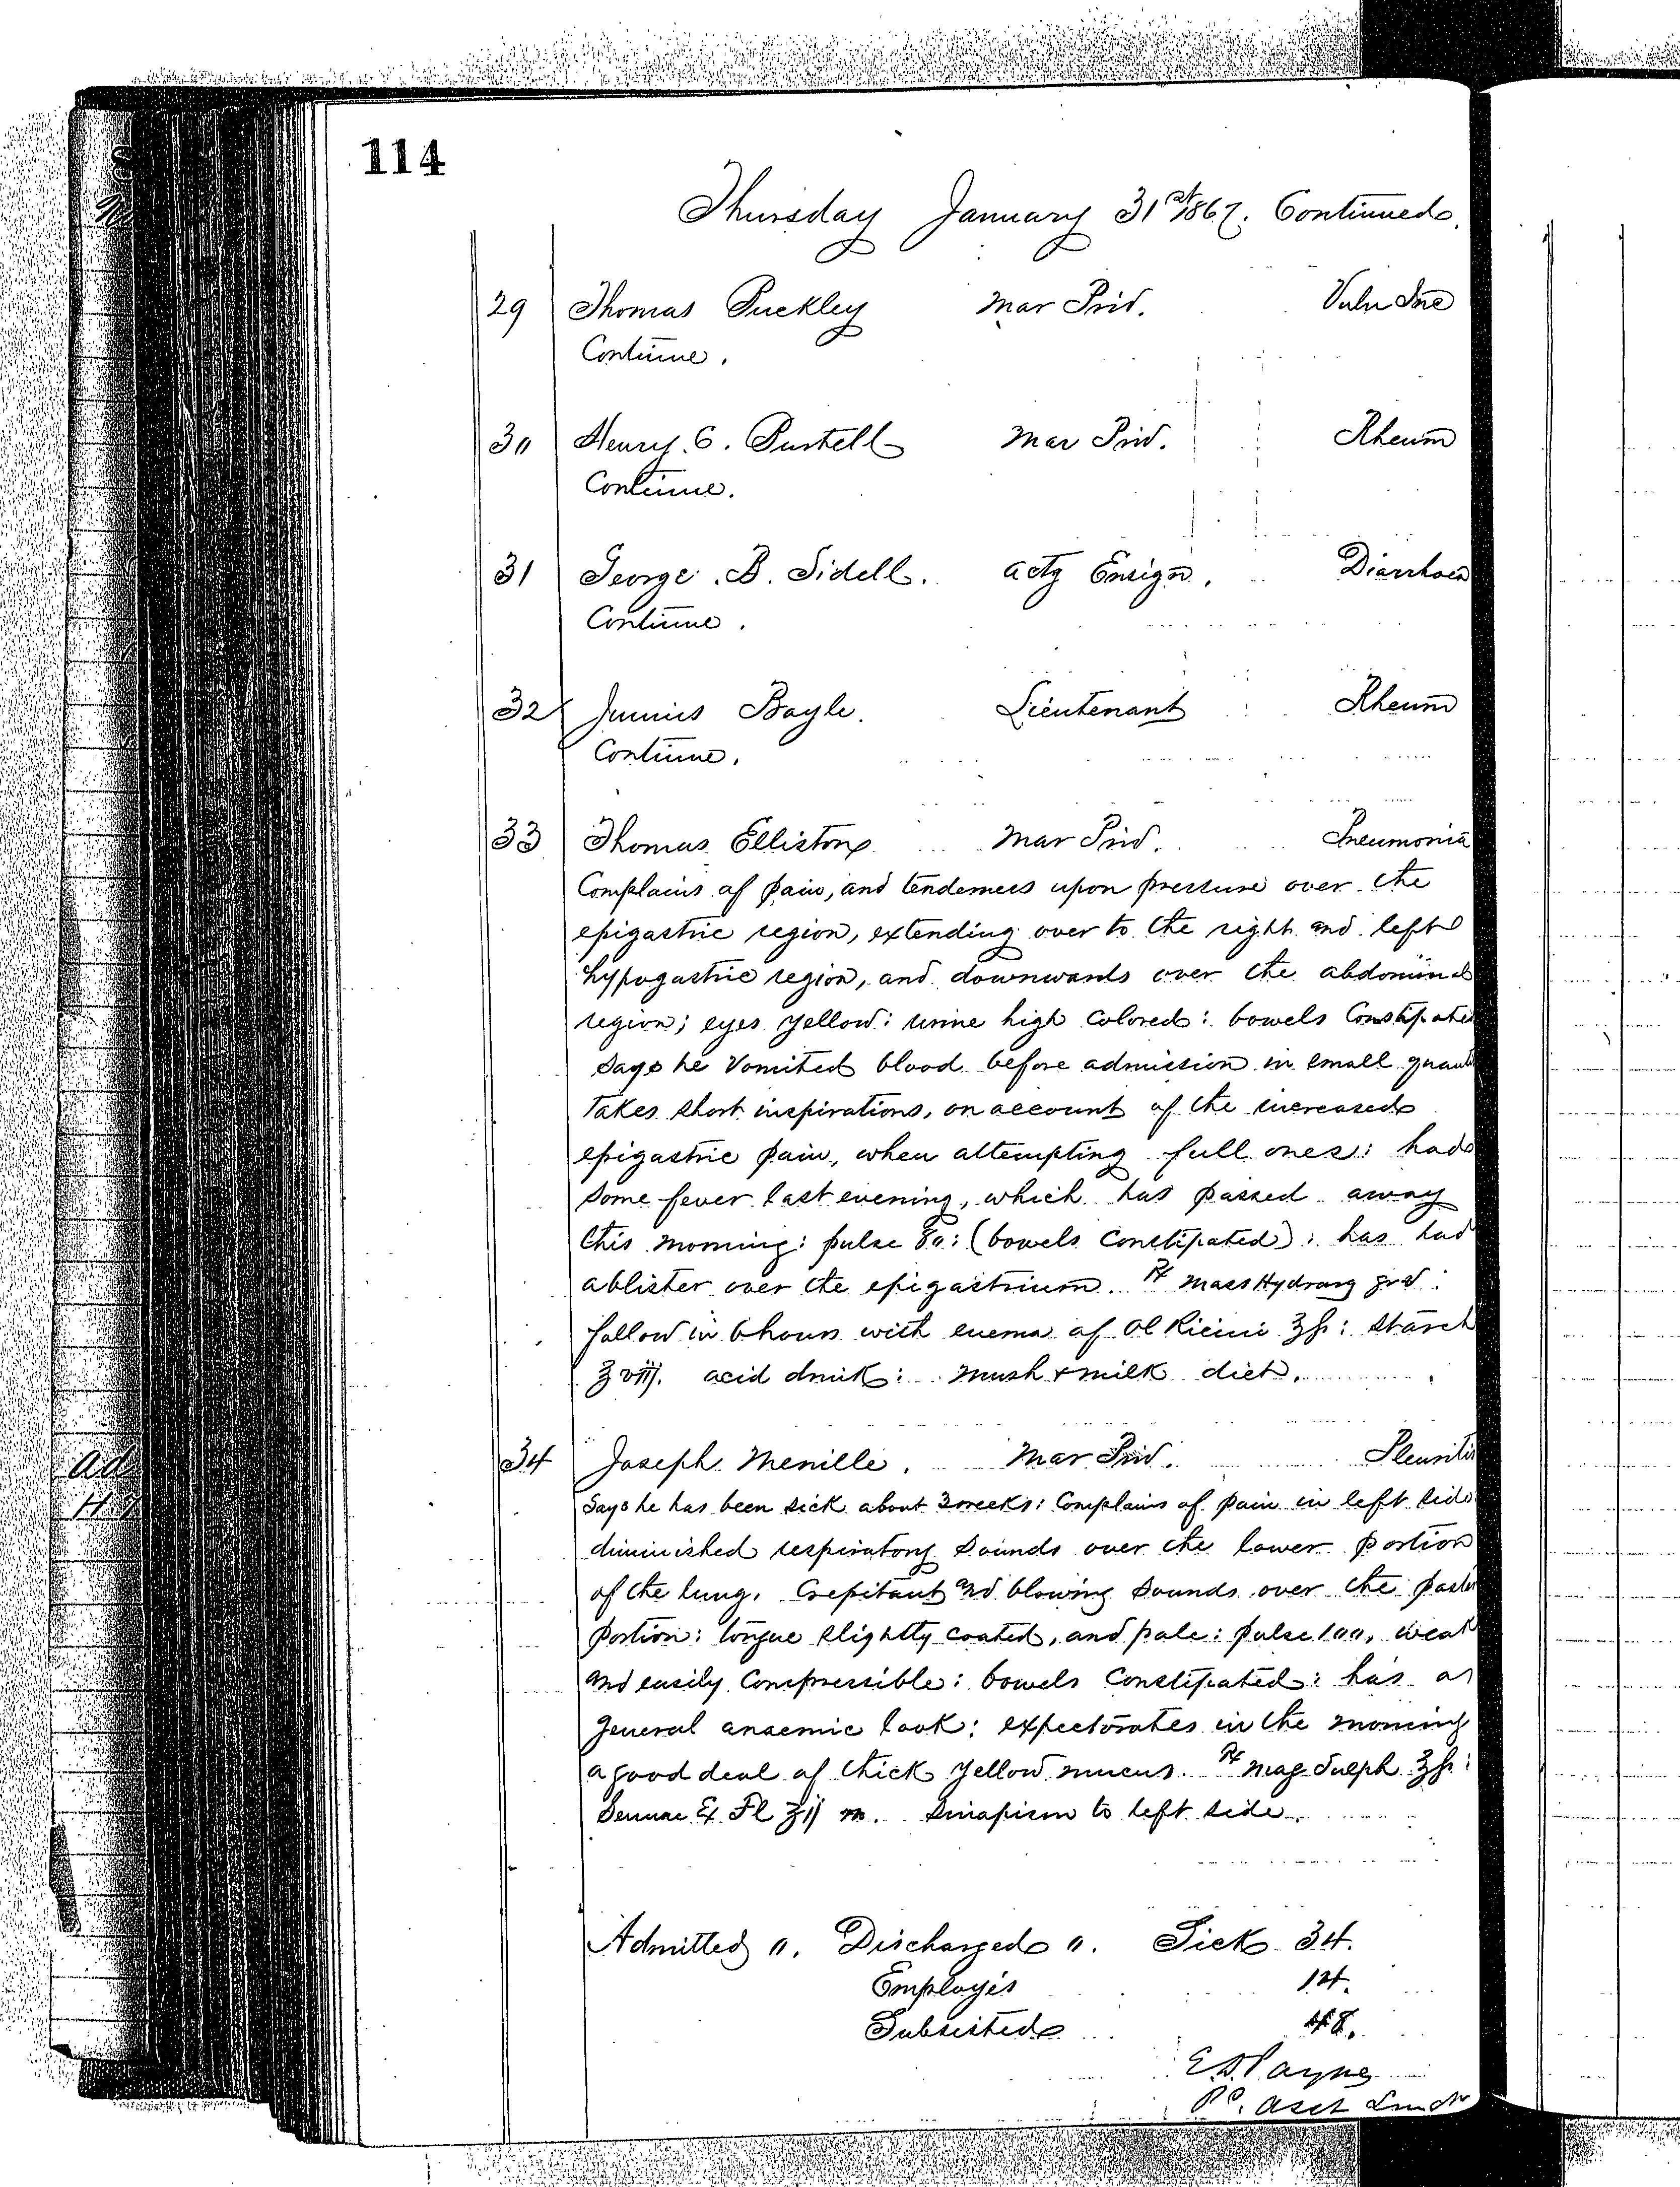 114
Thursday January 31st 1867. Continued.
29 Thomas Puckley Mar Priv. Vuln Inc
Continue.
30 Henry. C. Purtell Mar Priv. Rheum
Continue.
31 George. B. Sidell. Actg Ensign. Diarrhoea
Continue.
32 Junius Boyle. Lieutenant Rheum
Continue.
33 Thomas Elliston Mar Priv. Pneumonia
Complains of pain, and tenderness upon pressure over the
epigastric region, extending over to the right and left
hypogastric region, and downwards over the abdominal
region; eyes yellow: urine high colored: bowels Constipated
says he vomited blood before admission in small quanti
takes short inspirations, on account of the increased
epigastric pain, when attempting full ones: had
some fever last evening, which has passed away
this morning: pulse 80: (bowels constipated): has had
a blister over the epigastrium. ℞ Mass Hydrarg
follow in 6 hours with enema of Ol Ricini ℥ß: starch
℥viij. acid drink: mush & milk diet.
34 Joseph Menille. Mar Priv. Pleuritis
Says he has been sick about 3 weeks: Complains of pain in left side
diminished respiratory sounds over the lower portion
of the lung. Crepitant and blowing sounds over the poster
portion: tongue slightly coated, and pale: pulse 100, weak
and easily compressible: bowels constipated: has a
general anaemic look: expectorates in the morning
a good deal of thick yellow mucus. ℞ Mag Sulph ℥ß:
Sennae Ex Fl ℥ij m. sinapism to left side.
Admitted 0. Discharged 0. Sick 34.
Employés 14.
Subsisted 48.
Payne
Asst
Ad